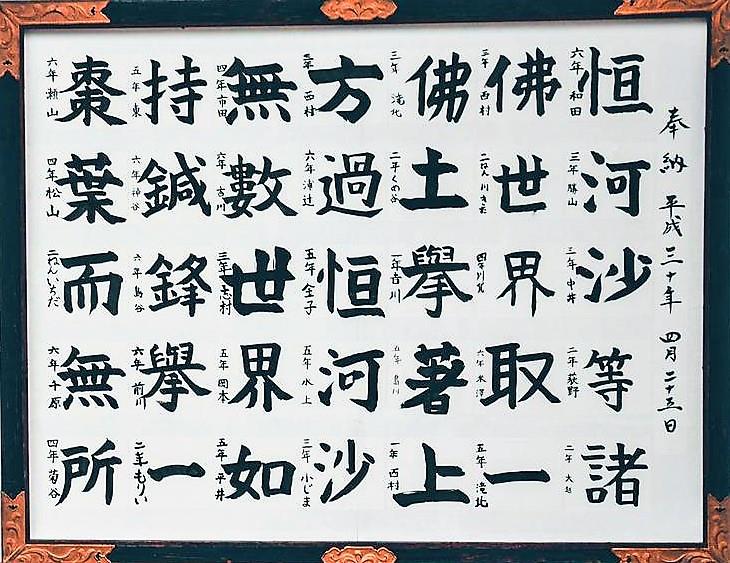 奉納 平成三十年 四月二十五日
恒河沙等諸
六年 和田
三年 勝山
中井
二年 荻野
二年
佛世界取一
三年 西村
二ねん
六年 木澤
五年 滝北
佛土擧著上
三年 滝北
二年 くめ谷
一年 吉川
五年
一年 西村
方過恒河沙
西村
六年
五年 金子
五年 水上
三年 小じま
無數世界如
四年 市田
六年 吉川
三年 志村
五年 岡本
五年 平井
持鍼鋒擧一
五年 東
六年 神谷
六年 島谷
六年 前川
二年 もりい
棗葉而無所
六年 瀬山
四年 松山
二ねん いちだ
六年 千原
四年 菊谷